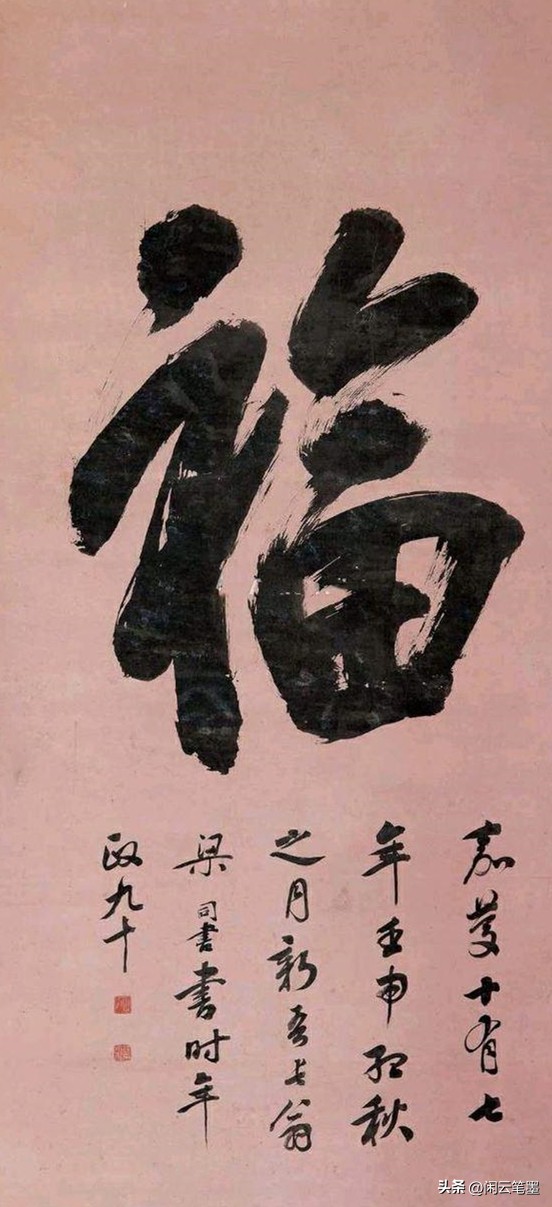 福
嘉慶十有七
年壬申初秋
之月新吾长翁
梁同書書时年
政九十
头条 @闲云笔墨